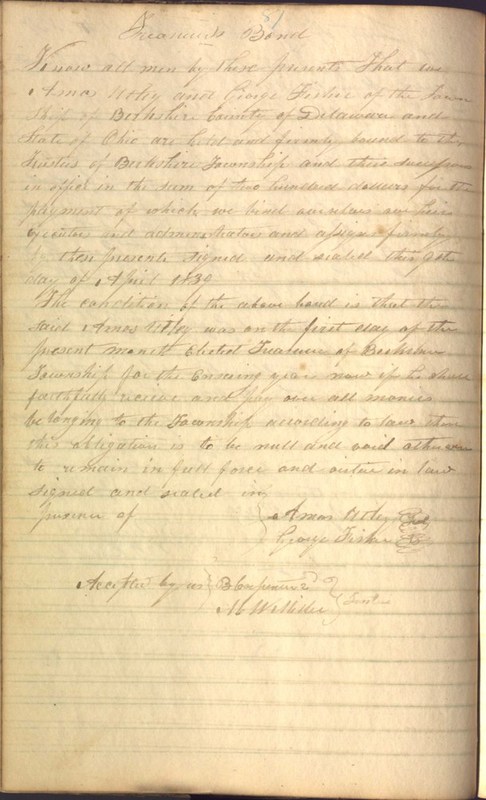 Treasurer's Bond
Know all men by these presents That we
Amos Utley and George Fisher of the Town
Ship of Berkshire County of Delaware and
State of Ohio are held and firmly bound to the
trustees of Berkshire Township and their successors
in office in the sum of two hundred dollars for the
payment of which we bind ourselves our heirs
Executors and administrators and assigns firmly
by these presents signed and sealed this
day of April 1839
The condition of the above bond is that the
said Amos Utley was on the first day of the
present month Elected Treasurer of Berkshire
Township for the Ensuing year now if he shall
faithfully receive and pay over all monies
belonging to the Township according to law then
this obligation is to be null and void otherwise
to remain in full force and virtue in law
signed and sealed in
presence of
Amos Utley Seal
George Fisher
Accepted by us B Carpenter
Miller